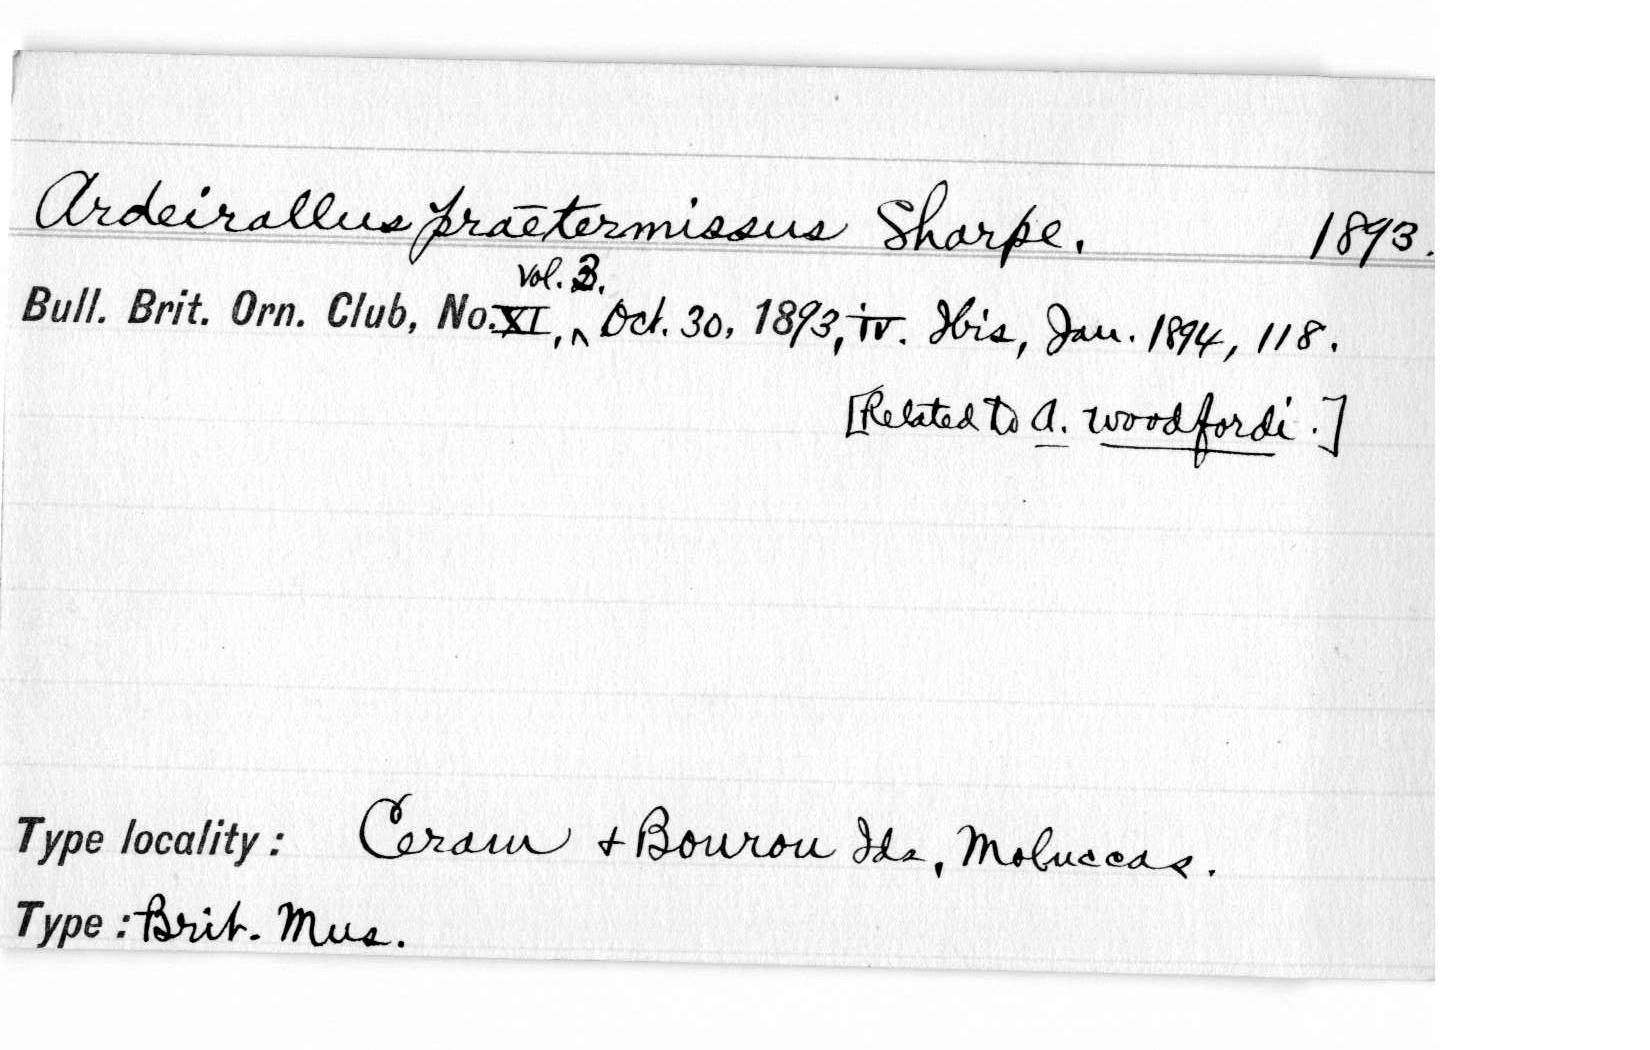 Ardeirallus praetermissus Sharpe. 1893.
Bull. Brit. Orn. Club, No. XI, vol. 3. Oct. 30, 1893, iv. Ibis, Jan. 1894, 118.
[Related to A. woodfordi.]
Type locality: Ceram + Bourou Ids, Moluccas.
Type: Brit. Mus.